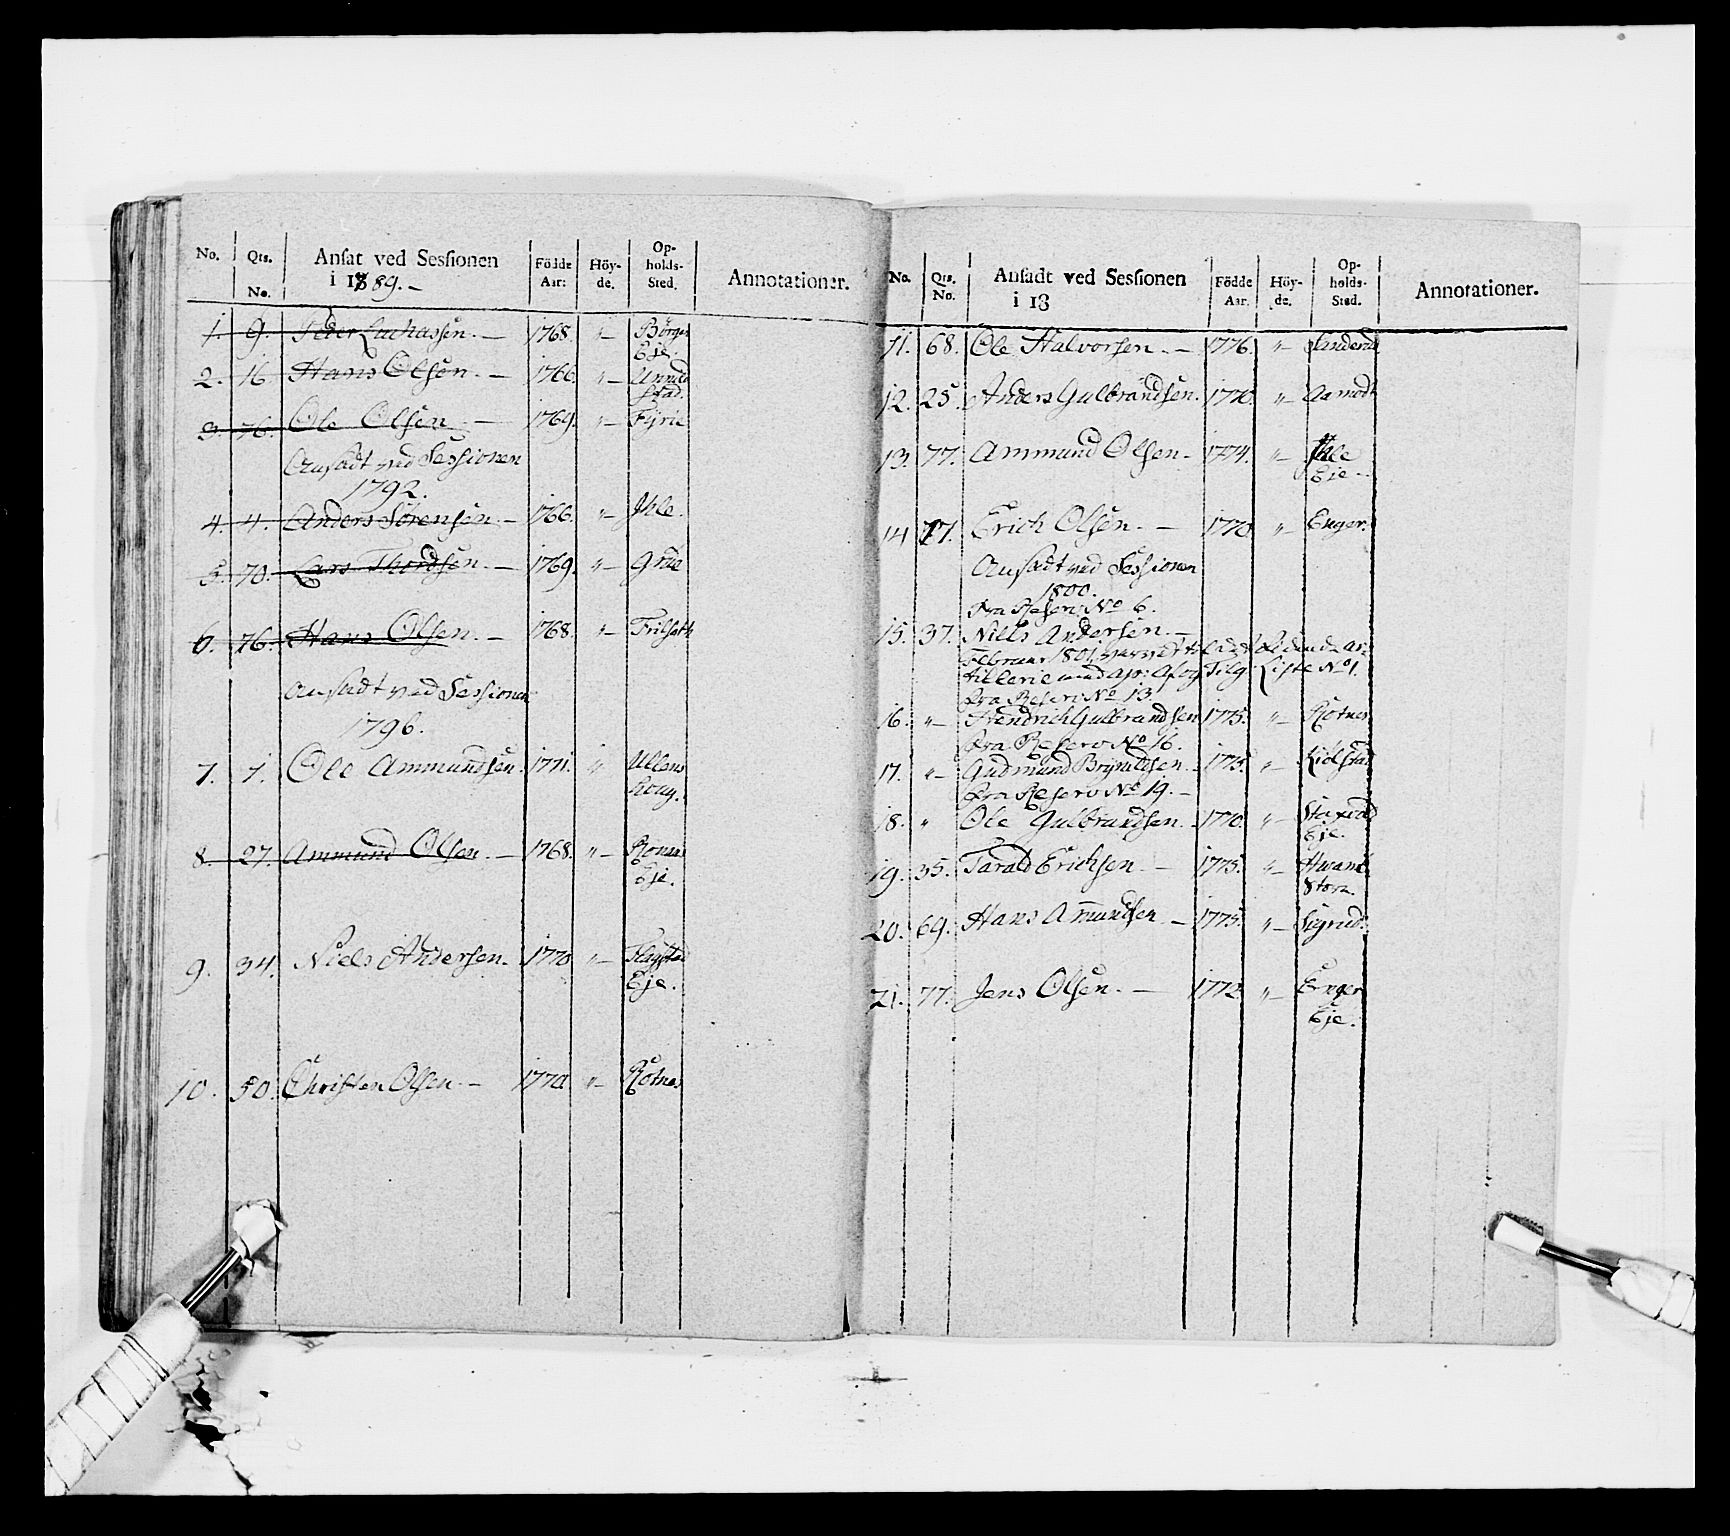 No. Qts. No. Ansat ved Sessionen i 1789. - Födde Aar: Höy-de. Op-holds-Sted. Annotationer.
1. 9. Peder Zachassen. — 1768. "— Börge
Eje
2. 16. Hans Olsen. — 1766. "—
stad.
3. 76. Ole Olsen — 1769. "— Fyrie
Ansadt ved Sessionen
1792.
4. 4. Anders Sörensen. — 1766. "— Ihle.
5. 70. Lars Thordsen. — 1769. "— Grue
6. 76. Hans Olsen. — 1768. "— Frilseth
Ansadt ved Sessionen
1796.
7. 1. Ole Ammundsen. 1771. " Ullens
houg.
8. 27. Ammund Olsen. — 1768. "— Romnes
Eje.
9. 34. Niels Andersen. 1770 "— Flaystad
Eje.
10. 50. Christen Olsen. — 1770. "— Rotnes
No. Qts. No. Ansadt ved Sessionen i 18 Födde Aar. Höy-de. Op-holds-Sted. Annotationer.
11. 68. Ole Halvorsen. — 1776. "— Sanderud
12. 25. Anders Gulbrandsen. 1770. "— Aamodt
13. 77. Ammund Olsen. 1774. "— Ihle
Eje.
14 77. Erich Olsen. — 1770 "— Enger.
Ansadt ved Sessionen
1800.
fra Reserv No 6.
15. 37. Niels Andersen.
Februar 1801 til Ar-
tillerie med Afg Tilg Liste No 1.
fra Reserv No 13
16. "— Hendrich Gulbrandsen 1775. "— Rotnes
fra Reserv No 16.
17. "— Gudmund Brynildsen. 1775. "— Kiölstad
fra Reserv No 19. —
18. " Ole Gulbrandsen. 1770. "—
Eje.
19. 35. Tarald Erichsen. — 1775. "— Hvam
Store.
20. 69. Hans Amundsen — 1775. "— Sigrud.
21. 77. Jens Olsen. — 1772. "— Enger
Eje.